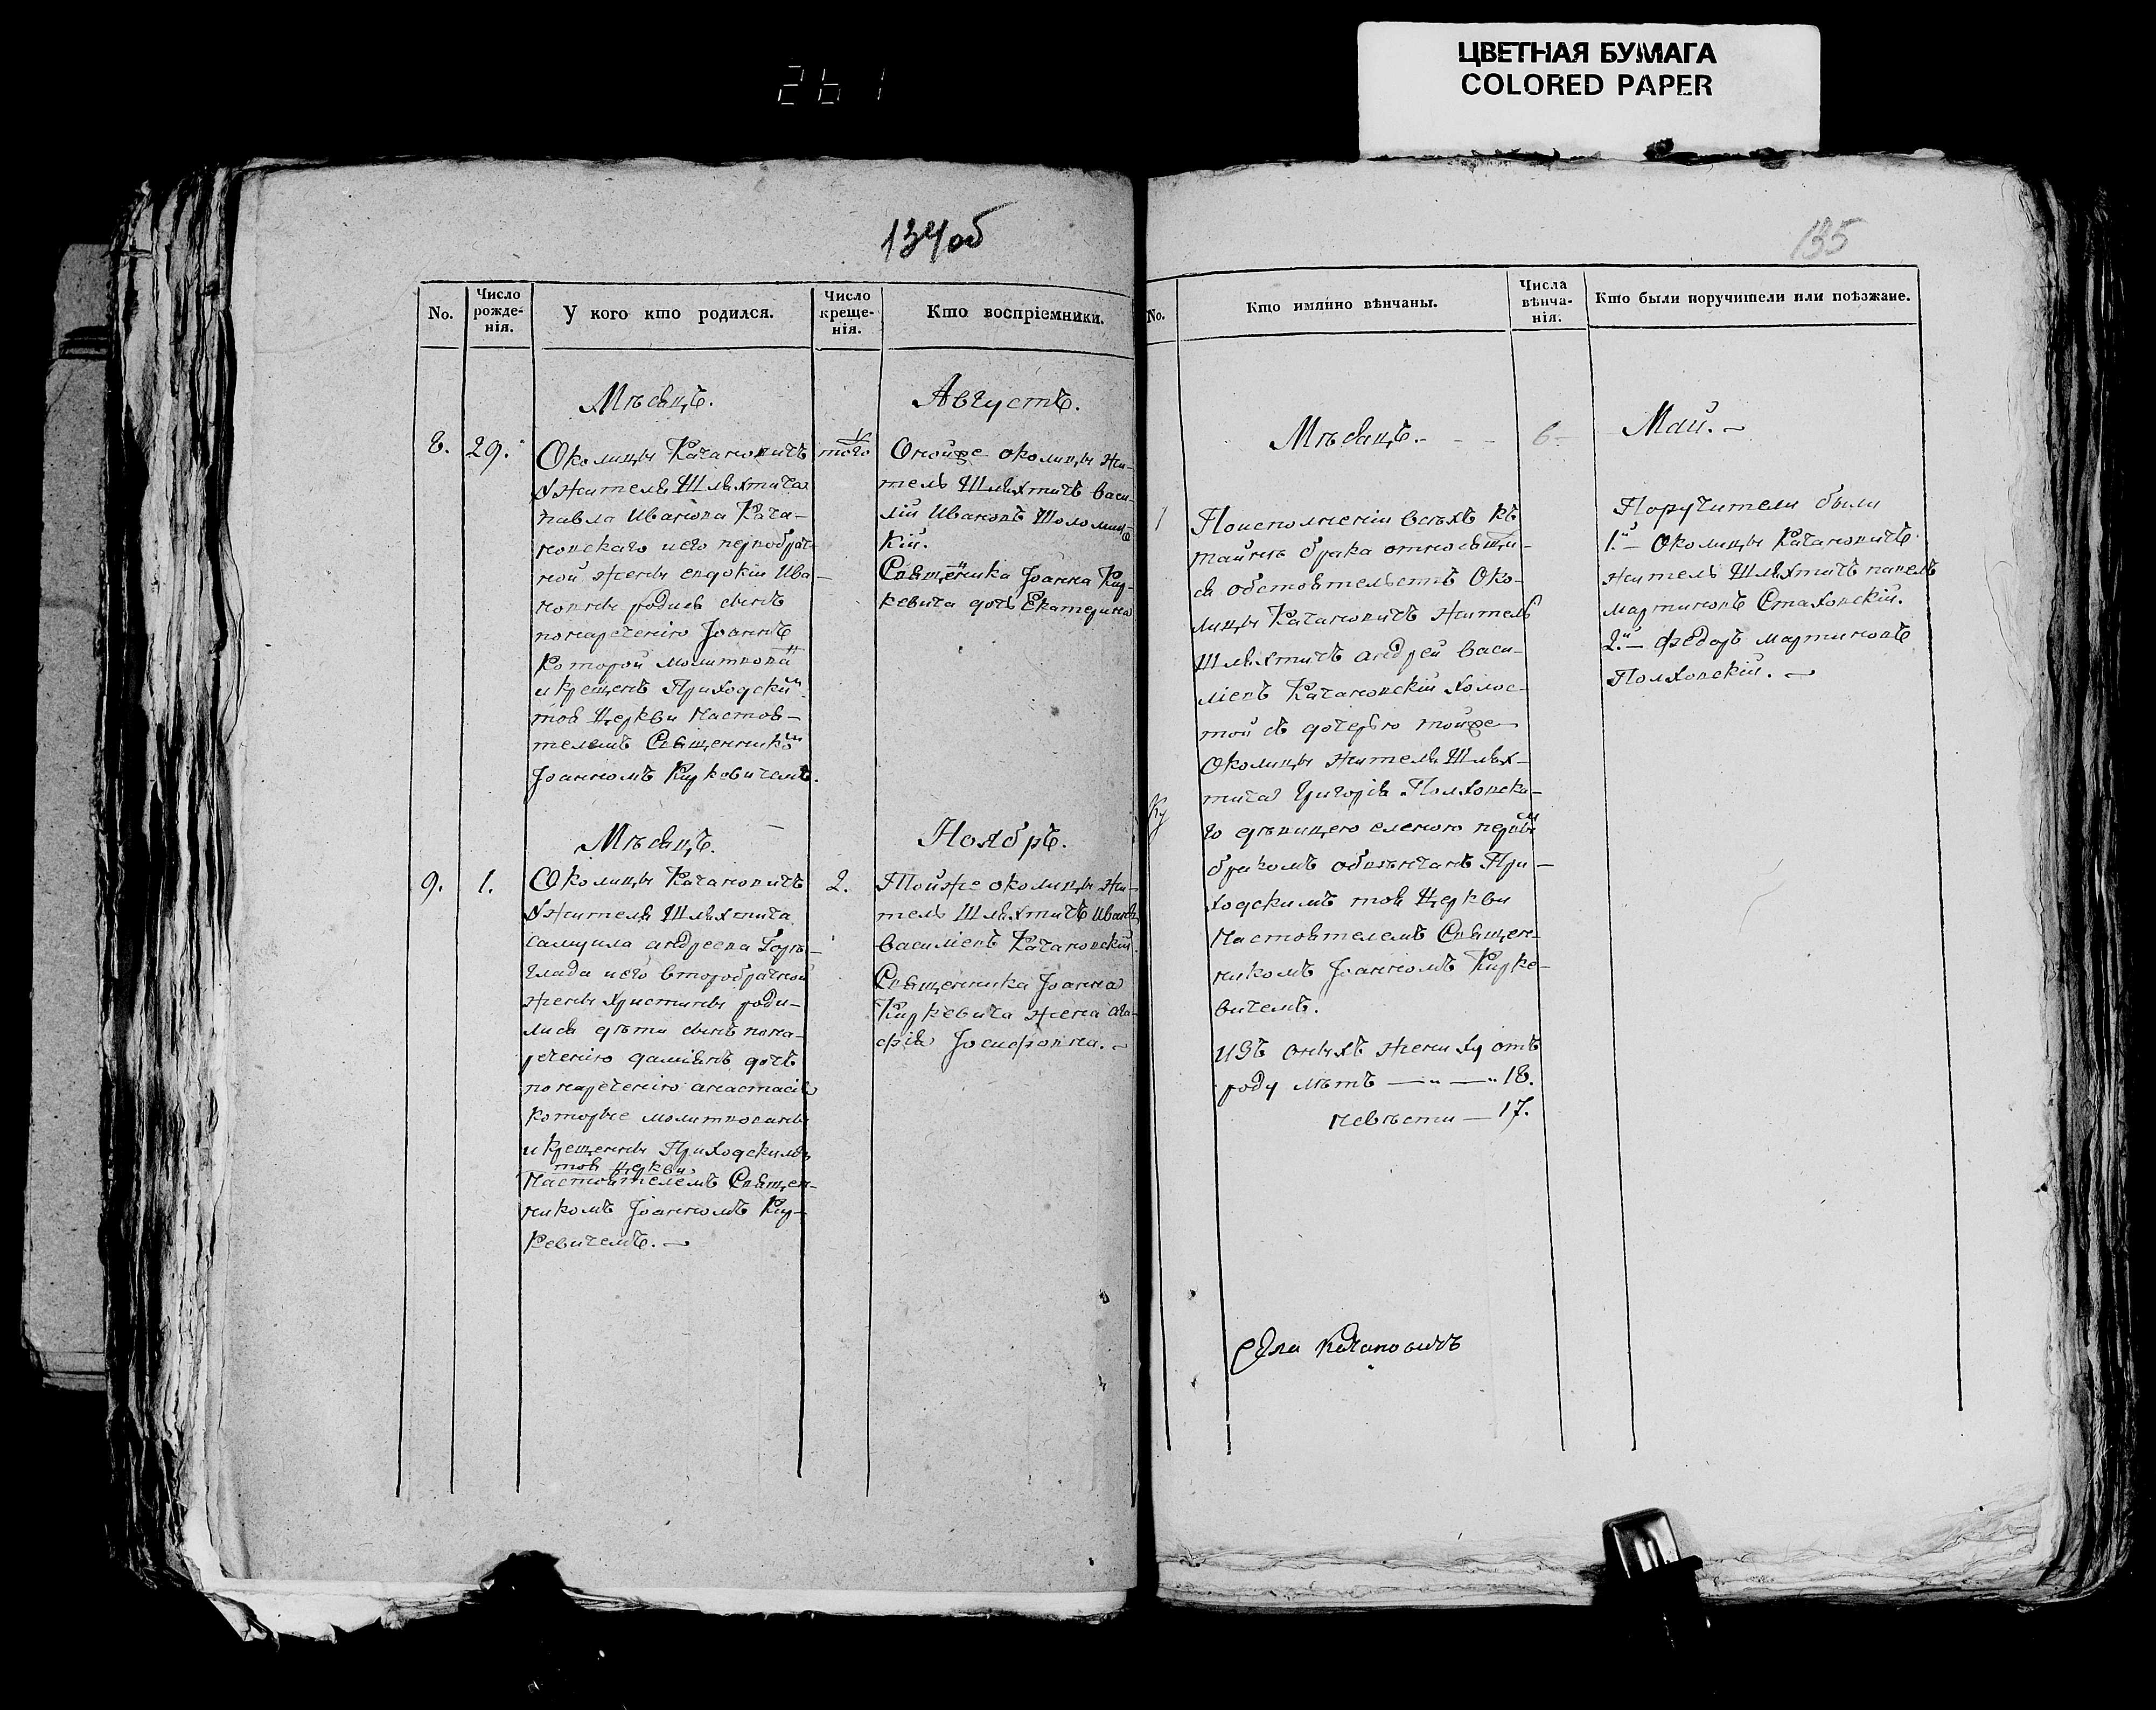 ЦВЕТНАЯ БУМАГА
COLORED PAPER
261
134об
No.
Число рожде-нія.
У кого кто родился.
Число креще-нія.
Кто воспріемники.
Мѣсяцъ.
Августъ.
8.
29.
Околицы Качановичъ
жителя Шляхтича
павла Иванова Кача-
новскаго иего первобрач-
ной жены евдокіи Ива-
новны родися сынъ
понареченію Јоаннъ
которой молитвован
и крещенъ Приходским
тоя Церкви Настоя-
телемъ Священником
Јоанномъ Киркевичемъ.
того
Онойже околицы жи-
тель Шляхтичъ васи-
лій Ивановъ Шоломиц-
кій.
Священника Јоанна Кир-
кевича дочь Екатерина
Мѣсяцъ.
Ноябрь.
9.
1.
Околицы Качановичъ
жителя Шляхтича
самуила андреева
иего второбрачной
жены христины роди-
лися дѣти сынъ пона-
реченію даміянъ дочь
понареченію анастасія
которые молитвованы
и крещенны Приходскимъ
тоя церкви
Настоятелемъ Священ-
никомъ Јоанномъ Кир-
кевичемъ.
2.
Тойже околицы жи-
тель Шляхтичъ Иванъ
василіевъ Качановскій.
Священника Јоанна
Киркевича жена ага-
фія Јосифовна.
135
No.
Кто имянно вѣнчаны.
Числа вѣнча-нія.
Кто были поручители или поѣзжане.
Мѣсяцъ.
6
Май.
1
Поисполненіи всѣхъ къ
тайнѣ брака относящи-
ся обстоятельствъ Око-
лицы Качановичъ житель
Шляхтичъ андрей васи-
ліевъ Качановскій холос-
той съ дочерью тойже
Околицы жителя Шлях-
тича Григорія Полховска-
го дѣвицею еленою первым
бракомъ обвѣнчанъ При-
ходскимъ тоя Церкви
Настоятелемъ Священ-
никомъ Јоанномъ Кирке-
вичемъ.
Изъ оныхъ жениху отъ
роду лѣтъ — 18.
невѣсти — 17.
Поручители были
1.й — Околицы Качановичъ
житель Шляхтичъ павелъ
мартиновъ Стаховскій.
2.й — Федоръ мартиновъ
Полховскій.
Ки
Качановичъ